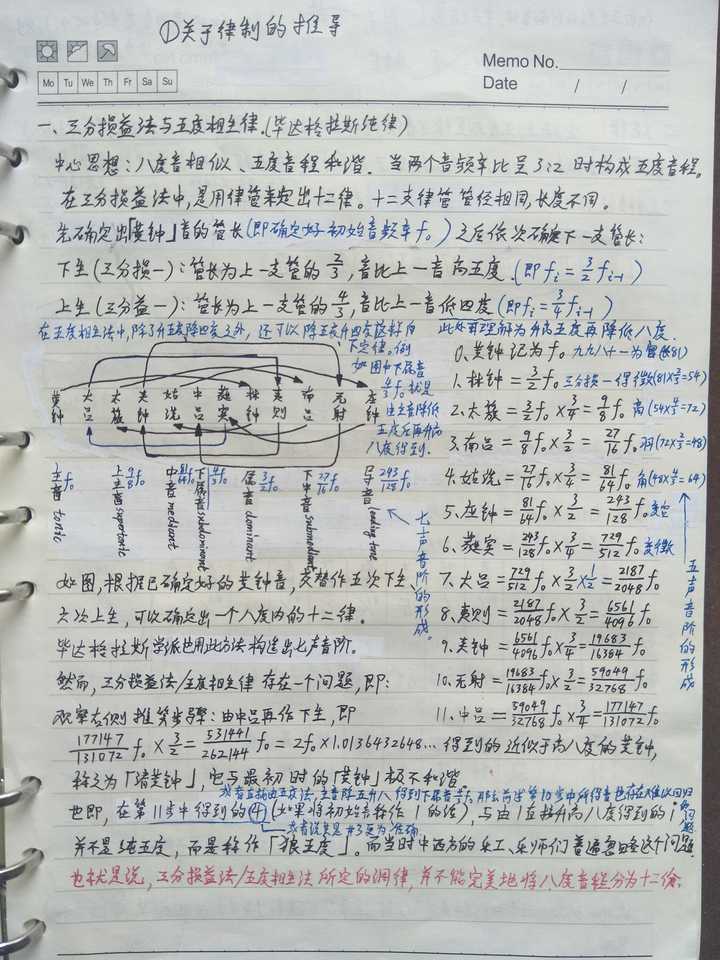 ①关于律制的推导
Memo No.
Mo Tu We Th Fr Sa Su
Date / /
一、三分损益法与五度相生律.(毕达格拉斯纯律)
中心思想:八度音相似、五度音程和谐. 当两个音频率比呈3:2时构成五度音程。
在三分损益法中,是用律管来定出十二律。十二支律管管径相同,长度不同。
先确定出「黄钟」音的管长(即确定好初始音频率f₀)之后依次确定下一支管长:
下生(三分损一):管长为上一支管的2/3,音比上一音高五度.(即fᵢ=3/2fᵢ₋₁)
上生(三分益一):管长为上一支管的4/3,音比上一音低四度(即fᵢ=3/4fᵢ₋₁)
在五度相生法中,除了升五度降四度之外,还可以降五度升四度这样向
下定律。例
如图中下属音
4/3f₀就是
由主音降低
五度后再升高
八度得到.
此处可理解为升高五度再降低八度.
黄钟 大吕 太簇 夹钟 姑洗 中吕 蕤宾 林钟 夷则 南吕 无射 应钟
主音 f₀ tonic
上主音 9/8f₀ supertonic
中音 81/64f₀ mediant
下属音 4/3f₀ subdominant
属音 3/2f₀ dominant
下中音 27/16f₀ submediant
导音 243/128f₀ leading tone
七声音阶的形成。
0.黄钟 记为f₀ 九九八十一为宫(81)
1.林钟=3/2f₀ 三分损一得徵(81×2/3=54)
2.太簇=3/2f₀×3/4=9/8f₀ 商(54×4/3=72)
3.南吕=9/8f₀×3/2=27/16f₀ 羽(72×2/3=48)
4.姑洗=27/16f₀×3/4=81/64f₀ 角(48×4/3=64)
5.应钟=81/64f₀×3/2=243/128f₀ 变宫
6.蕤宾=243/128f₀×3/4=729/512f₀ 变徵
7.大吕=729/512f₀×3/2×1/2=2187/2048f₀
8.夷则=2187/2048f₀×3/2=6561/4096f₀
9.夹钟=6561/4096f₀×3/4=19683/16384f₀
10.无射=19683/16384f₀×3/2=59049/32768f₀
11.中吕=59049/32768f₀×3/4=177147/131072f₀
五声音阶的形成
如图,根据已确定好的黄钟音,交替作五次下生
六次上生,可以确定出一个八度内的十二律。
毕达格拉斯学派也用此方法构造出七声音阶。
然而,三分损益法/五度相生律 存在一个问题,即:
观察右侧推算步骤:由中吕再作下生,即
177147/131072f₀×3/2=531441/262144f₀=2f₀×1.0136432648… 得到的近似于高八度的黄钟,
称之为「清黄钟」,它与最初时的「黄钟」极不和谐.
也即,在第11步中得到的④(如果将初始音称作1的话),与由1直接升高八度得到的1
或者说其是#3更为准确.
并不是纯五度,而是称作「狼五度」。而当时中西方的乐工、乐师们普遍忽略这个问题.
也就是说,三分损益法/五度相生法所定的调律,并不能完美地将八度音程分为十二份.